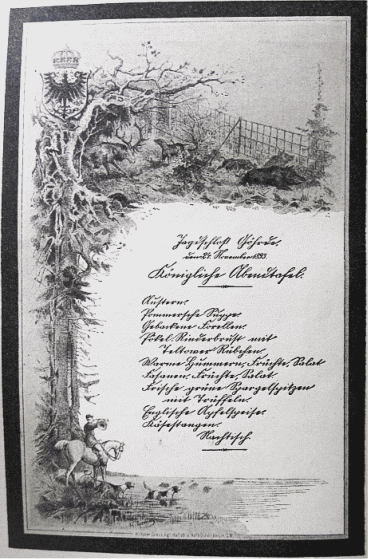 Jagdschloß Göhrde,
den 25. November 1893.
Königliche Abendtafel.
Austern.
Pommersche Suppe.
Gebackene Forellen.
Pökel-Rinderbrust mit
Teltower Rübchen.
Warme Hummern, Früchte, Salat
Fasanen, Früchte, Salat.
Frische grüne Spargelspitzen
mit Trüffeln.
Englische Apfelspeise.
Käsestangen.
Nachtisch.